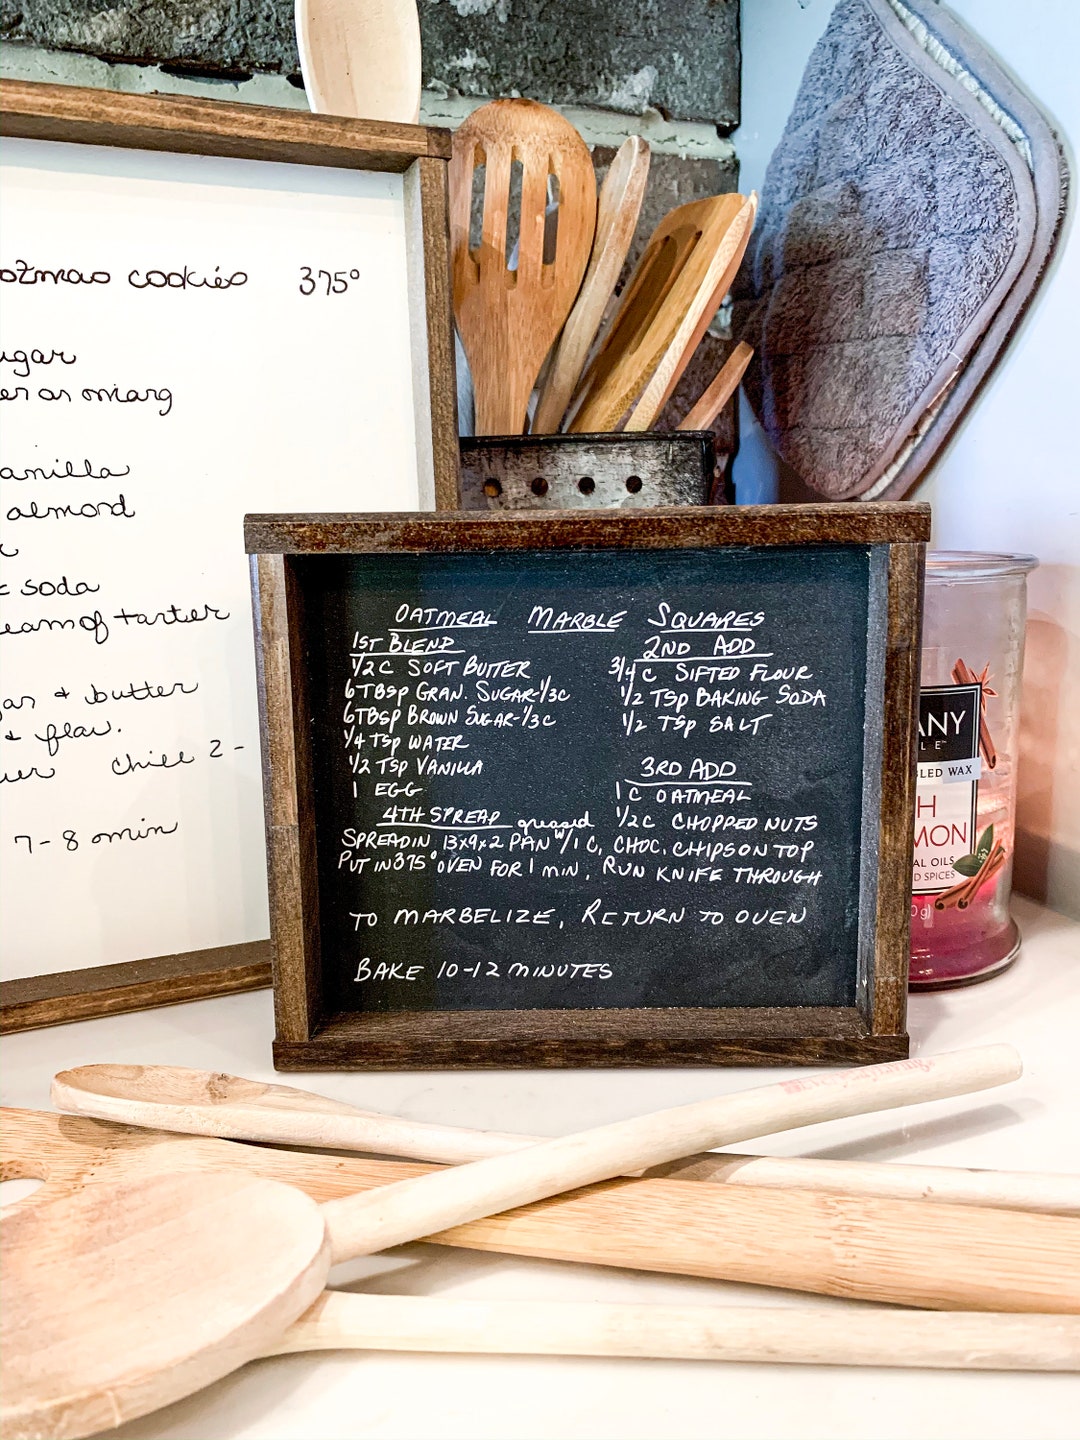 cookies 375°
or marg
almond
soda
tarter
& butter
& flav.
chill 2 -
7-8 min
OATMEAL MARBLE SQUARES
1ST BLEND
1/2 C SOFT BUTTER
6 TBSP GRAN. SUGAR-1/3C
6 TBSP BROWN SUGAR-1/3C
1/4 TSP WATER
1/2 TSP VANILLA
1 EGG
2ND ADD
3/4 C SIFTED FLOUR
1/2 TSP BAKING SODA
1/2 TSP SALT
3RD ADD
1 C OATMEAL
1/2 C CHOPPED NUTS
4TH SPREAD greased
SPREAD IN 13x9x2 PAN W/1 C. CHOC. CHIPS ON TOP
PUT IN 375° OVEN FOR 1 MIN, RUN KNIFE THROUGH
TO MARBELIZE, RETURN TO OVEN
BAKE 10-12 MINUTES
ANY
LE™
BLED WAX
H
MON
AL OILS
D SPICES
0g)